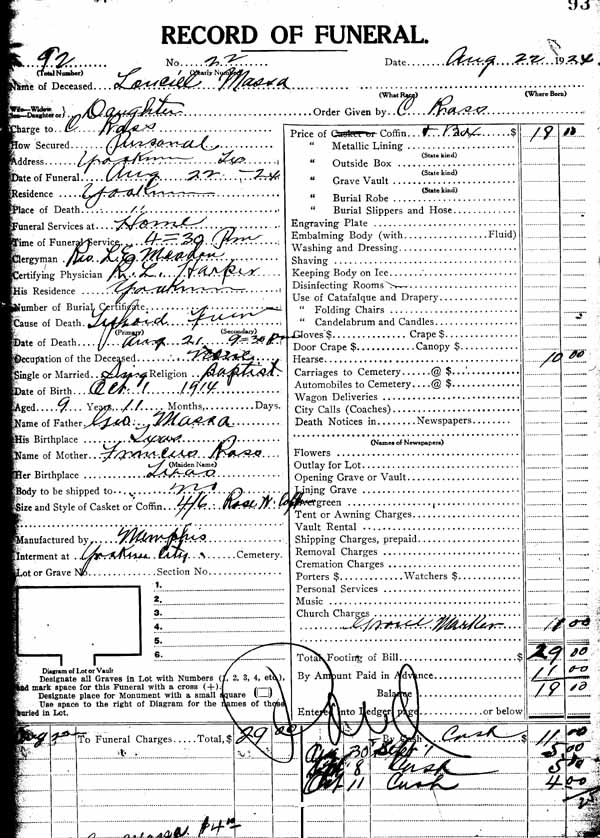 93
RECORD OF FUNERAL.
92 No. 22 Date Aug 22 1924
(Total Number) (Yearly Number)
Name of Deceased Massa
(What Race) (Where Born)
Wife—Widow
Son—Daughter of) Daughter Order Given by C Rass
Charge to C Rass
How Secured Personal
Address Yoakum Tex
Date of Funeral Aug 22 - 24
Residence Yoakum
Place of Death "
Funeral Services at Home
Time of Funeral Service 4=30 Pm
Clergyman Rev.
Certifying Physician Harper
His Residence Yoakum
Number of Burial Certificate
Cause of Death
(Primary) (Secondary)
Date of Death Aug 21 9=30 P
Occupation of the Deceased None
Single or Married Sing Religion Baptist
Date of Birth Oct 1 1914
Aged 9 Years 11 Months, Days.
Name of Father Geo Massa
His Birthplace
Name of Mother Rass
(Maiden Name)
Her Birthplace Texas
Body to be shipped to no
Size and Style of Casket or Coffin 4/6 Rose W.
Manufactured by Memphis
Interment at City Cemetery.
Lot or Grave No. Section No.
1.
2.
3.
4.
5.
6.
Diagram of Lot or Vault
Designate all Graves in Lot with Numbers (1, 2, 3, 4, etc.,
and mark space for this Funeral with a cross (+).
Designate place for Monument with a small square
Use space to the right of Diagram for the names of those
buried in Lot.
Price of Casket or Coffin & Box $ 18 00
" Metallic Lining
(State kind)
" Outside Box
(State kind)
" Grave Vault
(State kind)
" Burial Robe
" Burial Slippers and Hose
Engraving Plate
Embalming Body (with Fluid)
Washing and Dressing
Shaving
Keeping Body on Ice
Disinfecting Rooms
Use of Catafalque and Drapery
" Folding Chairs
" Candelabrum and Candles
Gloves $ Crape $
Door Crape $ Canopy $
Hearse 10 00
Carriages to Cemetery @ $
Automobiles to Cemetery @ $
Wagon Deliveries
City Calls (Coaches)
Death Notices in Newspapers
(Names of Newspapers)
Flowers
Outlay for Lot
Opening Grave or Vault
Lining Grave
Evergreen
Tent or Awning Charges
Vault Rental
Shipping Charges, prepaid
Removal Charges
Cremation Charges
Porters $ Watchers $
Personal Services
Music
Church Charges
Grave Marker 1 00
Total Footing of Bill $ 29 00
By Amount Paid in Advance 11 00
Balance 18 00
Entered into Ledger, page or below
Paid
To Funeral Charges Total, $ 29 00 By Cash Cash $ 11 00
30 5 00
8 Cash 5 00
Oct 11 Cash 4 00
Massa $4